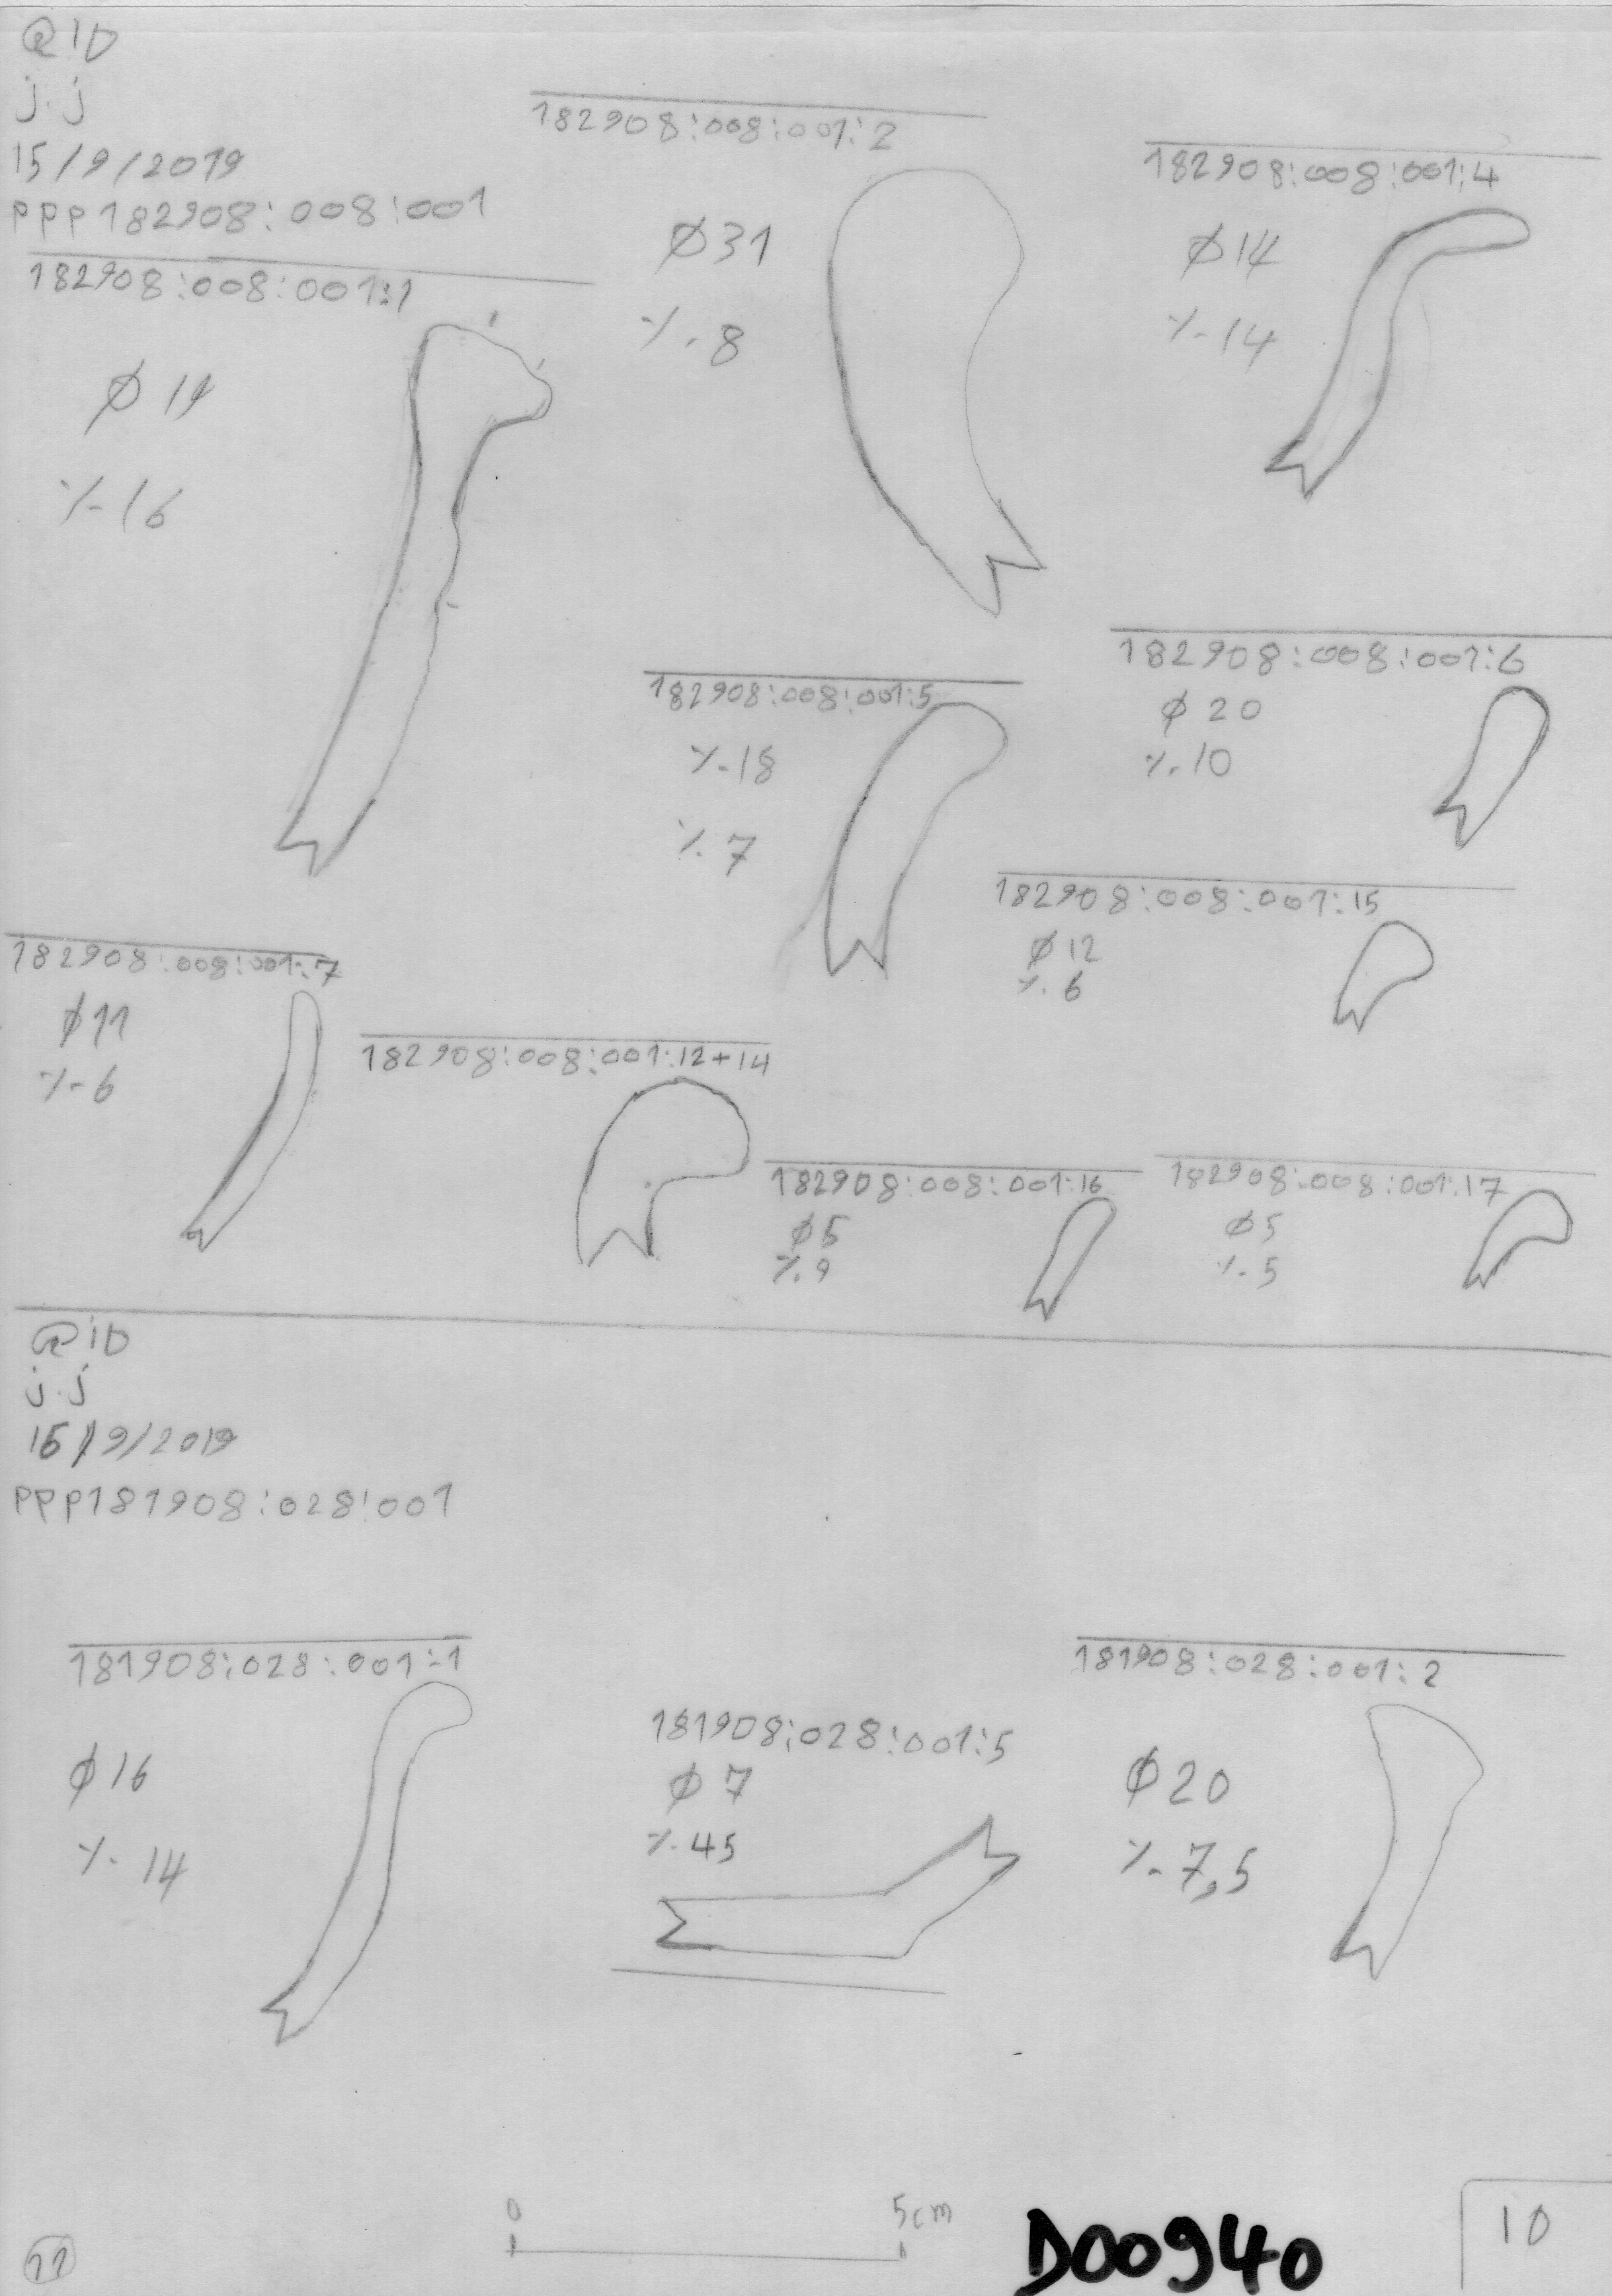 QID
j.j
15/9/2019
PPP182908:008:001
182908:008:001:1
Ø 11
%.16
182908:008:001:2
Ø31
%.8
182908:008:001:4
Ø14
%.14
182908:008:001:5
%.18
%.7
182908:008:001:6
Ø 20
%.10
182908:008:001:15
Ø 12
%.6
182908:008:001:7
Ø11
%.6
182908:008:001:12+14
182908:008:001:16
Ø5
%.9
182908:008:001:17
Ø5
%.5
QID
j.j
15/9/2019
PPP181908:028:001
181908:028:001:1
Ø16
%.14
181908:028:001:5
Ø 7
%.45
181908:028:001:2
Ø20
%.7,5
0
5cm
D00940
10
11